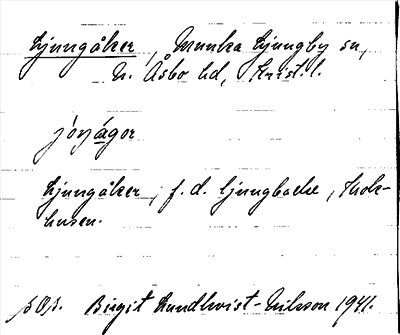 Ljungåker, Munka Ljungby sn,
N. Åsbo hd, Krist. l.
Ljungåker, f.d. ljungbacke,
husen.
Birgit Lundkvist-Nilsson 1941.